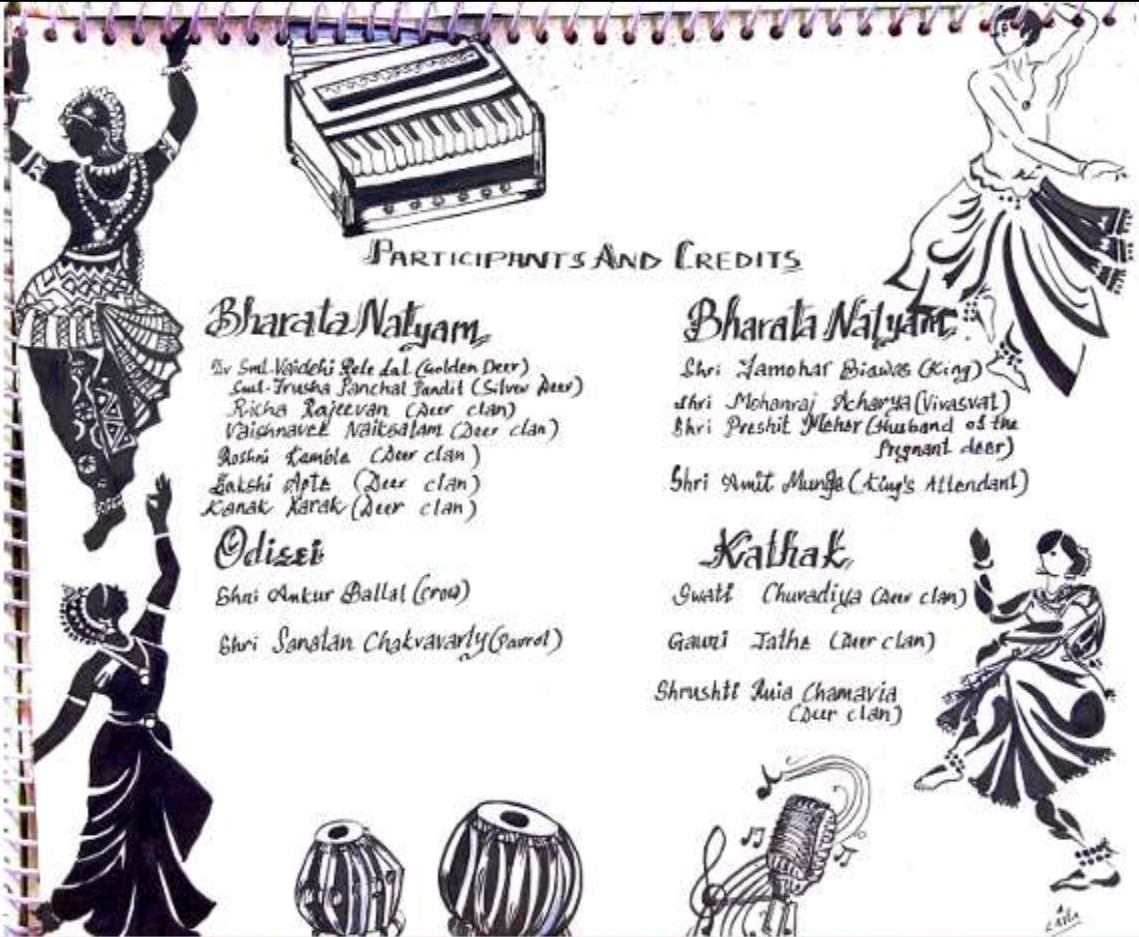 PARTICIPANTS AND CREDITS
Bharata Natyam
Dr Smt. Vaidehi Rele Lal (Golden Deer)
Smt. Trusha Panchal Pandit (Silver Deer)
Richa Rajeevan (Deer clan)
Vaishnavee Naiksatam (Deer clan)
Roshni Kamble (Deer clan)
Sakshi Apte (Deer clan)
Kanak Karak (Deer clan)
Odissi
Shri Ankur Ballal (Crow)
Shri Sanatan Chakravarty (Parrot)
Bharata Natyam
Shri Biswas (King)
Shri Mohanraj Acharya (Vivasvat)
Shri Preshit Meher (Husband of the
Pregnant deer)
Shri Amit Munga (King's Attendant)
Kathak
Swati Churadiya (Deer clan)
Gauri Jathe (Deer clan)
Shrushti Ruia Chamavia
(Deer clan)